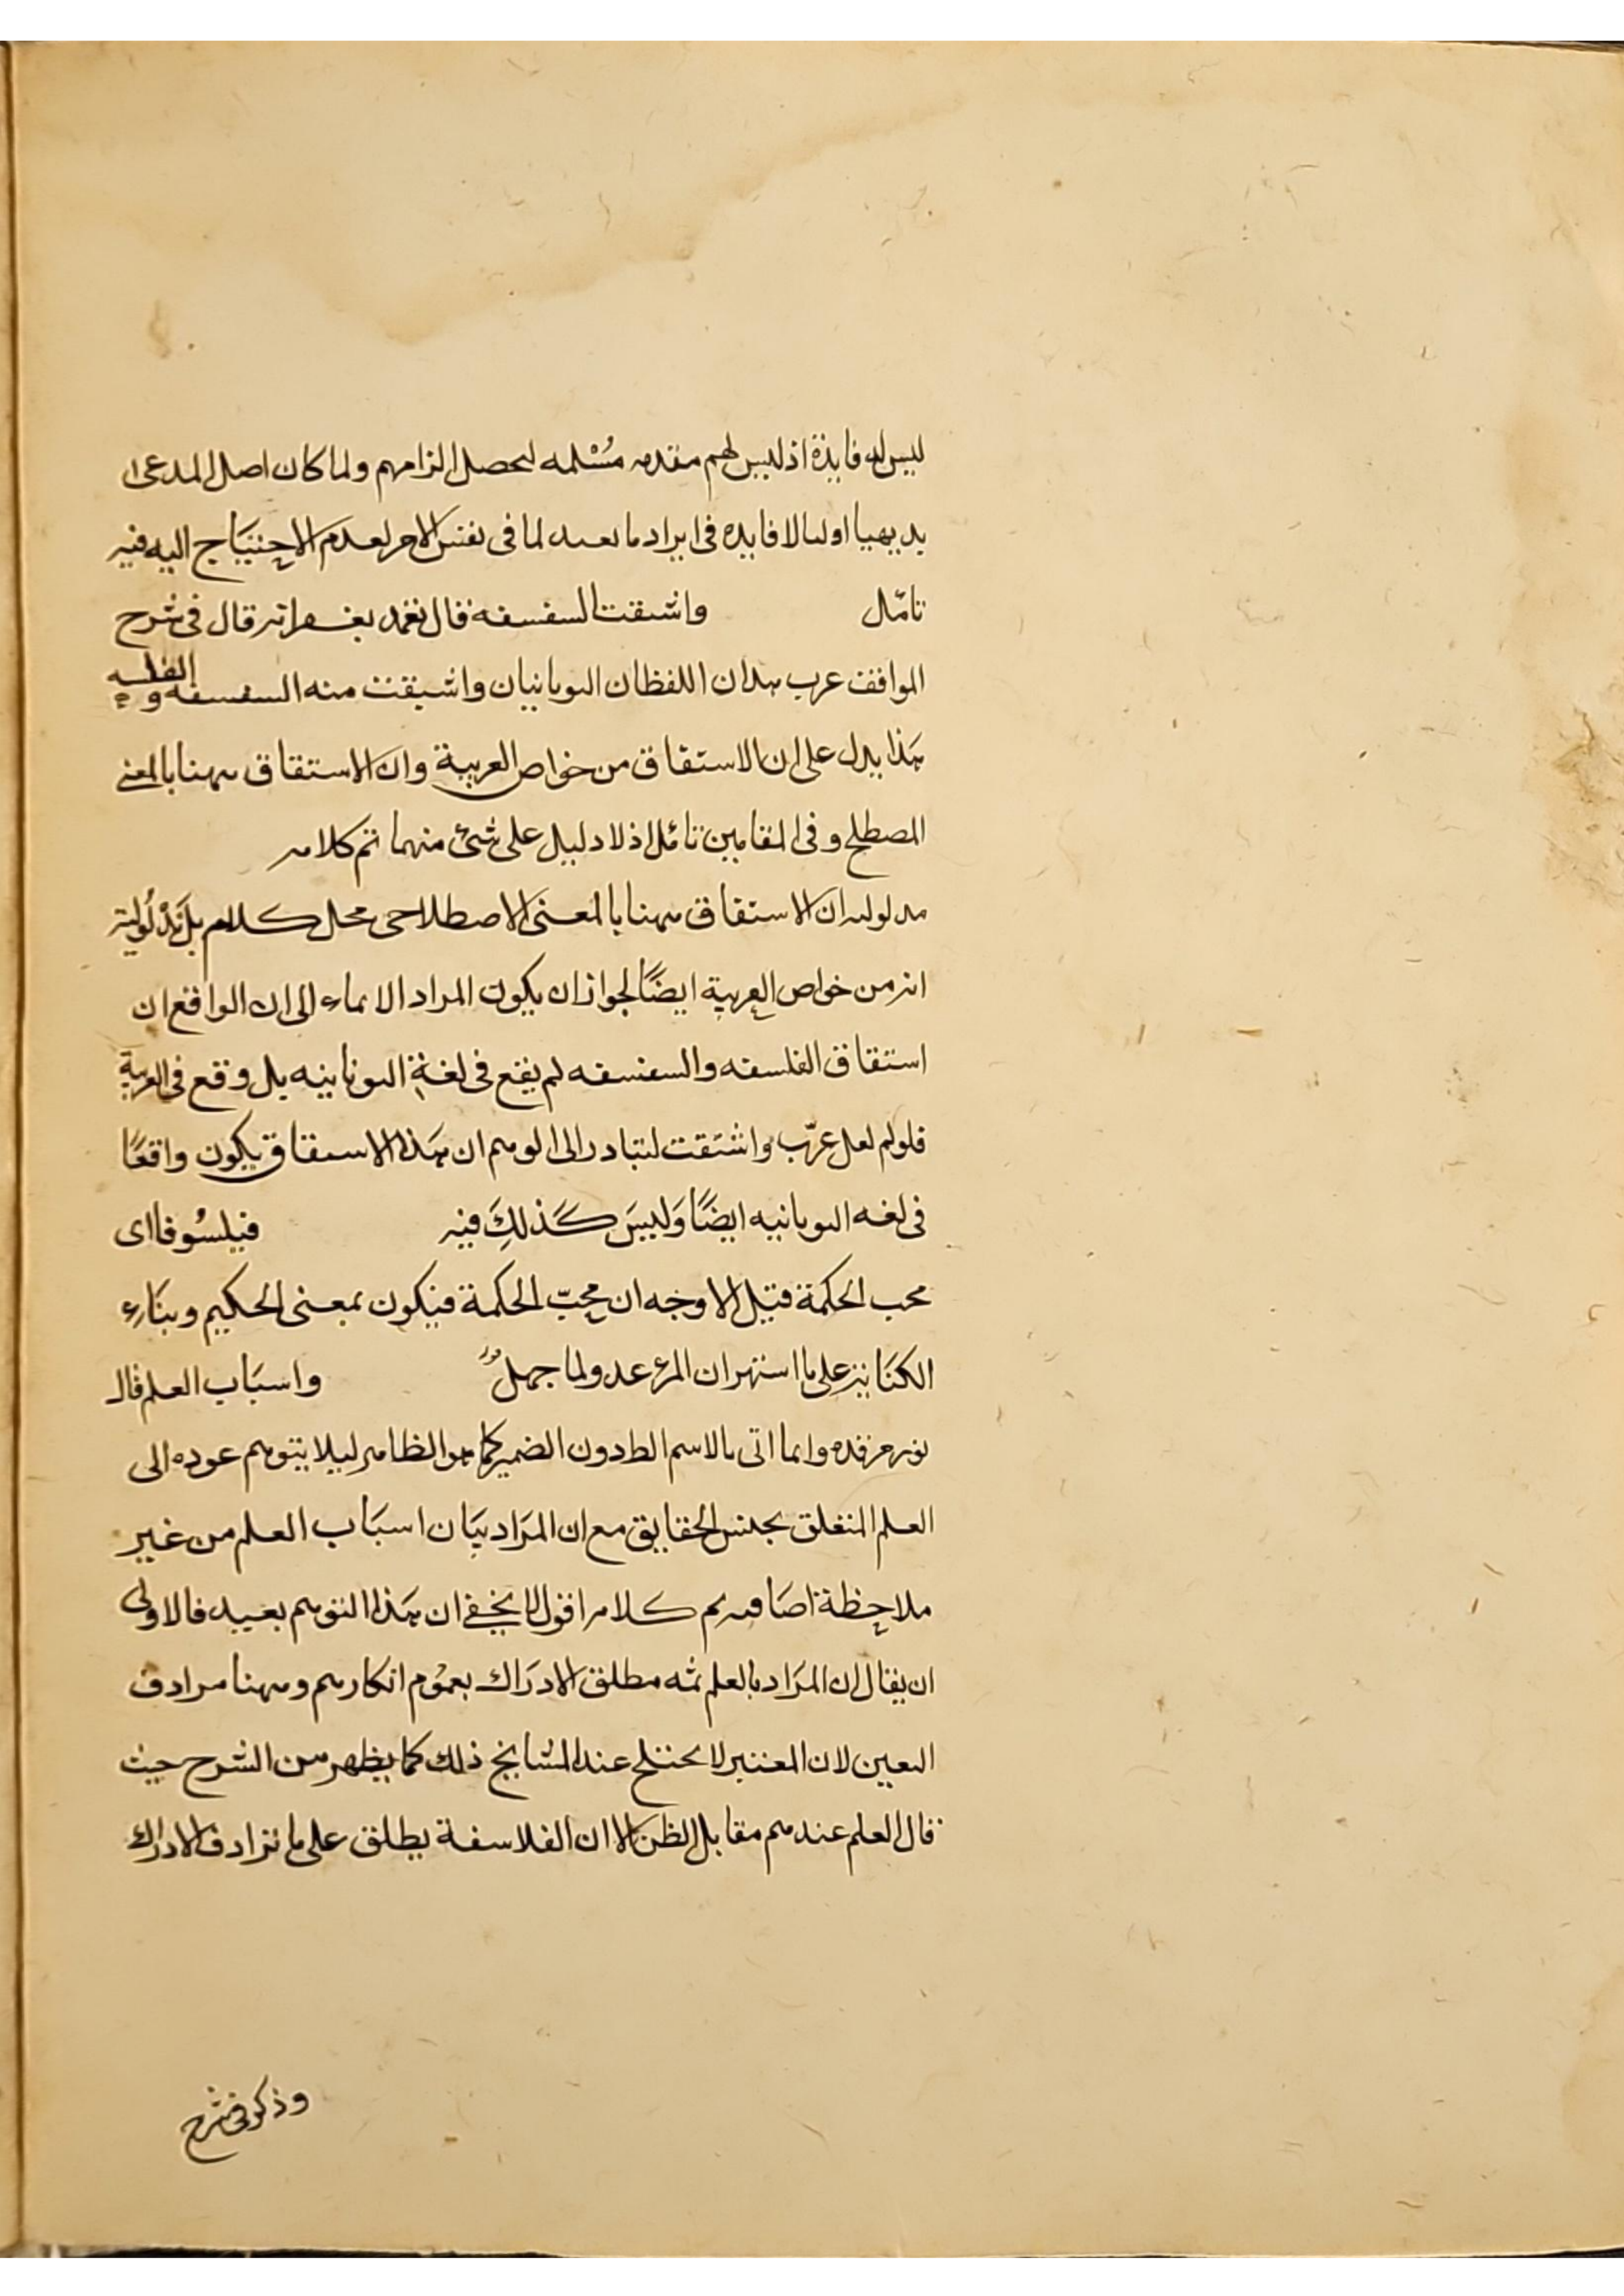 ليس له فايدة اذ ليس لهم مقدمه مُسْلمه لتحصل الزامهم ولما كان اصل المدعى
بديهيا اوليا لا فايده فى ايراد ما بعده لما فى نفس الامر لعدم الاحتياج اليه فيه
تامّل واشتقت السفسفه قال تغمد بغفرانه قال فى شرح
المواقف عرب هذان اللفظان اليونانيان واشتقت منه السفسفه و الفلسفه
هَذا يدل على ان الاستقاق من خواص العربية وان الاستقاق ههنا بالمعنى
المصطلح وفى المقامين تامّل اذ لا دليل على شئ منهما تم كلامه
مدلوليه ان الاستقاق ههنا بالمعنى الاصطلاحى محل كلام بل مَدْلُوليته
انه من خواص العربية ايضًا لجواز ان يكون المراد الايماء الى ان الواقع ان
استقاق الفلسفه والسفسفه لم يقع فى لغة اليونانيه بل وقع فى العربية
فلو لم لعل عرّب واشتَقت لتبادر الى الوهم ان هَذا الاستقاق يكون واقعًا
فى لغه اليونانيه ايضًا وَليسَ كَذلِكَ فيه فيلسُوفا اى
محب الحكمة قيل الاوجه ان محِبّ الحكمة فيكون بمعنى الحكيم وبنَاء
الكنَاية على ما اشتهر ان المرء عدو لما جهلُ واسبَاب العلم قال
نور مرقده وانما اتى بالاسم الظ دون الضمير كما هو الظاهر ليلا يتوهم عوده الى
العلم المتعلق بجنس الحقايق مع ان المرَاد بيَان اسبَاب العلم من غير
ملاحظة اضافته تم كلامه اقول لا يخفى ان هَذا التوهم بعيد فالاولى
ان يقال ان المرَاد بالعلم ثمه مطلق الادرَاك بعمُوم انكارهم وههنا مرادف
اليقين لان المعتبر لا يختلج عند المشايخ ذلك كما يظهر من الشرح حيث
قال العلم عندهم مقابل الظن الا ان الفلاسفة يطلق على ما ترادف الادراك
وذكر فى شرح